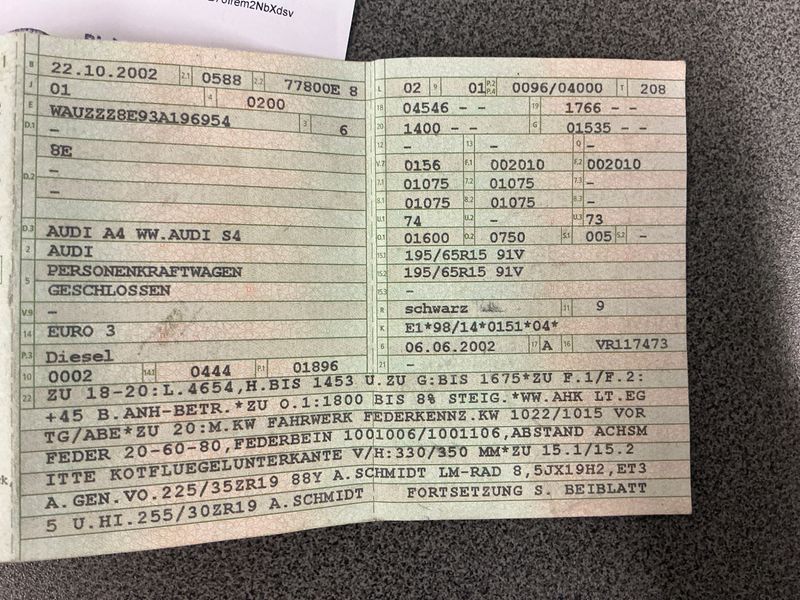 7oirem2NbXdsv
B 22.10.2002 2.1 0588 2.2 77800E 8
J 01 4 0200
E WAUZZZ8E93A196954 3 6
D.1 –
8E
D.2 –
–
D.3 AUDI A4 WW.AUDI S4
2 AUDI
5 PERSONENKRAFTWAGEN
GESCHLOSSEN
V.9 –
14 EURO 3
P.3 Diesel
10 0002 14.1 0444 P.1 01896
L 02 9 01 P.2 P.4 0096/04000 T 208
18 04546 – – 19 1766 – –
20 1400 – – G 01535 – –
12 – 13 – Q –
V.7 0156 F.1 002010 F.2 002010
7.1 01075 7.2 01075 7.3 –
8.1 01075 8.2 01075 8.3 –
U.1 74 U.2 – U.3 73
O.1 01600 O.2 0750 S.1 005 S.2 –
15.1 195/65R15 91V
15.2 195/65R15 91V
15.3 –
R schwarz 11 9
K E1*98/14*0151*04*
6 06.06.2002 17 A 16 VR117473
21 –
22 ZU 18-20:L.4654,H.BIS 1453 U.ZU G:BIS 1675*ZU F.1/F.2:
+45 B.ANH-BETR.*ZU O.1:1800 BIS 8% STEIG.*WW.AHK LT.EG
TG/ABE*ZU 20:M.KW FAHRWERK FEDERKENNZ.KW 1022/1015 VOR
FEDER 20-60-80,FEDERBEIN 1001006/1001106,ABSTAND ACHSM
ITTE KOTFLUEGELUNTERKANTE V/H:330/350 MM*ZU 15.1/15.2
A.GEN.VO.225/35ZR19 88Y A.SCHMIDT LM-RAD 8,5JX19H2,ET3
5 U.HI.255/30ZR19 A.SCHMIDT FORTSETZUNG S. BEIBLATT